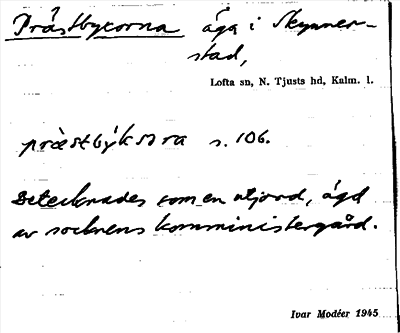 Prästbycorna äga i Skynner-
stad,
Lofta sn, N. Tjusts hd, Kalm. l.
s. 106.
Betecknades som en utjord, ägd
av socknens komministergård.
Ivar Modéer 1945